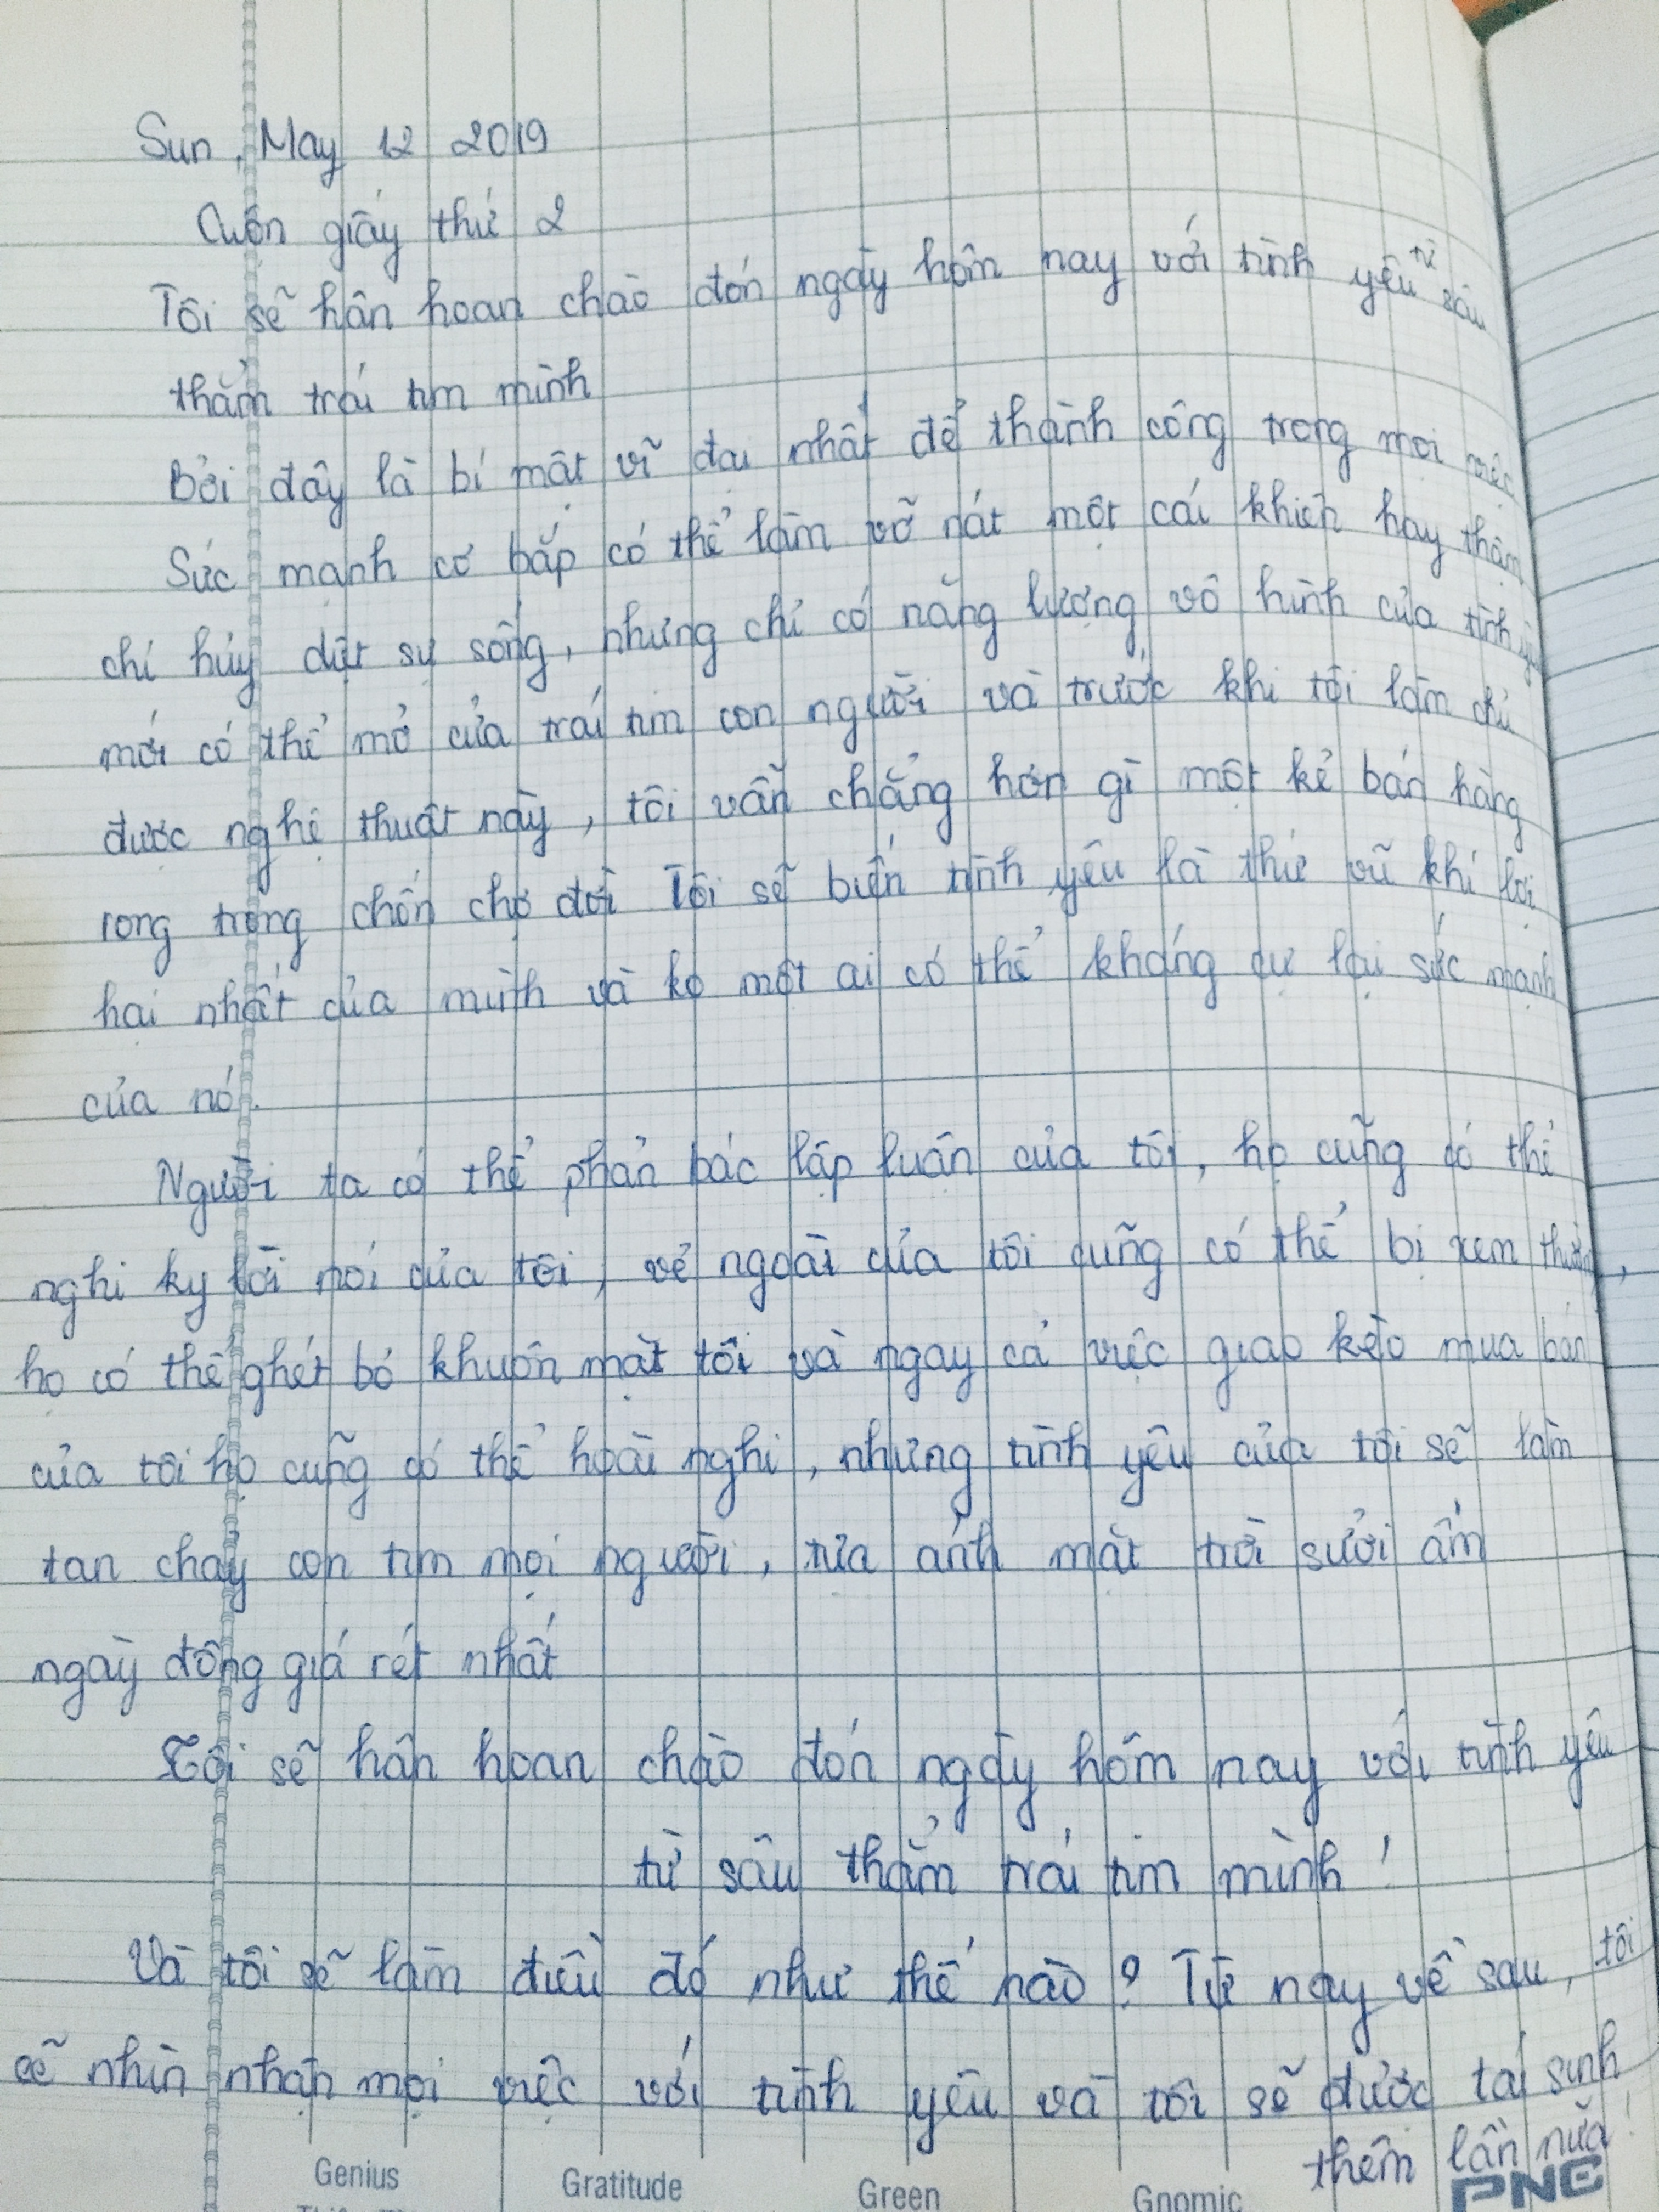 Sun, May 12 2019
Cuộn giấy thứ 2
Tôi sẽ hân hoan chào đón ngày hôm nay với tình yêu từ sâu
thẳm trái tim mình
Bởi đây là bí mật vĩ đại nhất để thành công trong mọi việc
Sức mạnh cơ bắp có thể làm vỡ nát một cái khiên hay thậm
chí hủy diệt sự sống, nhưng chỉ có năng lượng vô hình của tình yêu
mới có thể mở cửa trái tim con người và trước khi tôi làm chủ
được nghệ thuật này, tôi vẫn chẳng hơn gì một kẻ bán hàng
rong trong chốn chợ đời Tôi sẽ biến tình yêu là thứ vũ khí lợi
hại nhất của mình và ko một ai có thể kháng cự lại sức mạnh
của nó.
Người ta có thể phản bác lập luận của tôi, họ cũng có thể
nghi kỵ lời nói của tôi, vẻ ngoài của tôi cũng có thể bị xem thường,
họ có thể ghét bỏ khuôn mặt tôi và ngay cả việc giao kèo mua bán
của tôi họ cũng có thể hoài nghi, nhưng tình yêu của tôi sẽ làm
tan chảy con tim mọi người, tựa ánh mặt trời sưởi ấm
ngày đông giá rét nhất
Tôi sẽ hân hoan chào đón ngày hôm nay với tình yêu
từ sâu thẳm trái tim mình!
Và tôi sẽ làm điều đó như thế nào? Từ nay về sau, tôi
sẽ nhìn nhận mọi việc với tình yêu và tôi sẽ được tái sinh
thêm lần nữa!
Genius Gratitude Green Gnomic PNC